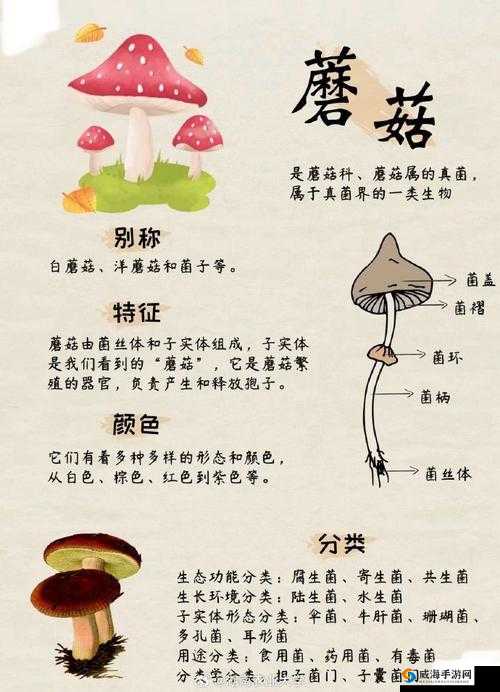 蘑菇
是蘑菇科、蘑菇属的真菌,
属于真菌界的一类生物
别称
白蘑菇、洋蘑菇和菌子等。
特征
蘑菇由菌丝体和子实体组成，子实体
是我们看到的“蘑菇”，它是蘑菇繁
殖的器官，负责产生和释放孢子。
颜色
它们有着多种多样的形态和颜色，
从白色、棕色、红色到紫色等。
菌盖
菌褶
菌环
菌柄
菌丝体
分类
生态功能分类：腐生菌、寄生菌、共生菌
生长环境分类：陆生菌、水生菌
子实体形态分类：伞菌、牛肝菌、珊瑚菌、
多孔菌、耳形菌
用途分类：食用菌、药用菌、有毒菌
分类学分类：担子菌门、子囊菌
威海手游网